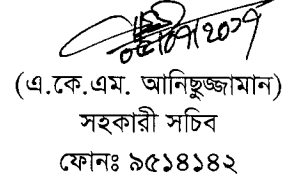 (এ.কে.এম. আনিছুজ্জামান)
সহকারী সচিব
ফোনঃ ৯৫১৪১৪২